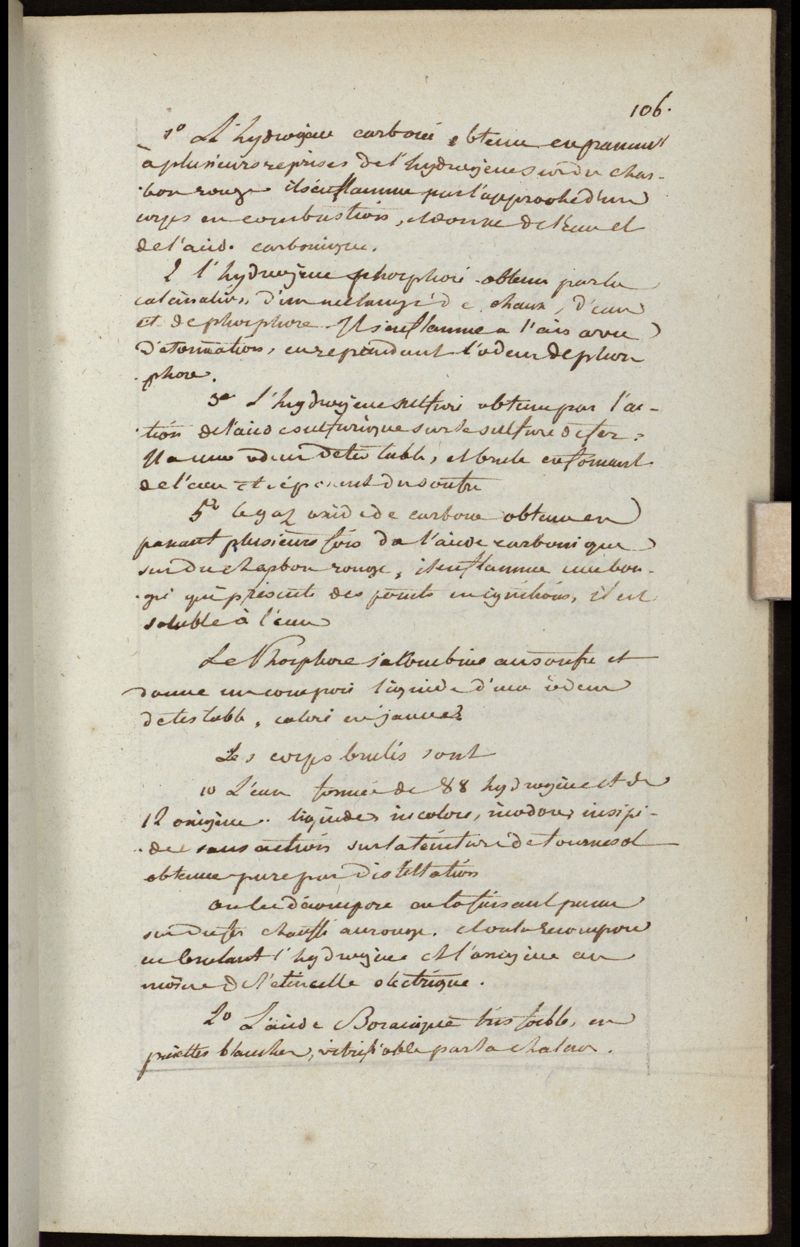 106.
1º L'hydrogène carboné obtenu en passant
à plusieurs reprises de l'hydrogène sur du char-
bon rouge il s'enflamme par l'approche d'un
corps en combustion, et donne de l'eau et
de l'acide carbonique.
2 l'hydrogène phosphoré obtenu par la
calcination d'un mélange de chaux, d'eau
et de phosphore. Il s'enflamme a l'air avec
détonnation, en rependant l'odeur de phos
phore.
3º L'hydrogène sulfuré obtenu par l'ac-
tion de l'acide sulfurique sur le sulfure de fer.
Il a une odeur detestable, et brule en formant
de l'eau et déposant du soufre
5º le gaz oxide de carbone obtenu en
passant plusieurs fois de l'acide carbonique
sur du charbon rouge, il enflamme une bou-
gie qui présente des points en ignition, il est
soluble à l'eau
Le Phosphore se combine au soufre et
donne un composé liquide d'une odeur
detestable, coloré en jaune
Les corps brulés sont
1º L'eau formée de 88 hydrogène et de
12 oxigène. liquide, incolore, inodore, insipi-
de sans action sur la teinture de tournesol
obtenue pure par distillation
on la décompose en la faisant passer
sur du fer chauffé au rouge. et on la recompose
en brulant l'hydrogène et l'oxigène au
moïen de l'etincelle electrique.
2º L'acide Boracique très foible, en
paillettes blanches, vitrifiable par la chaleur.